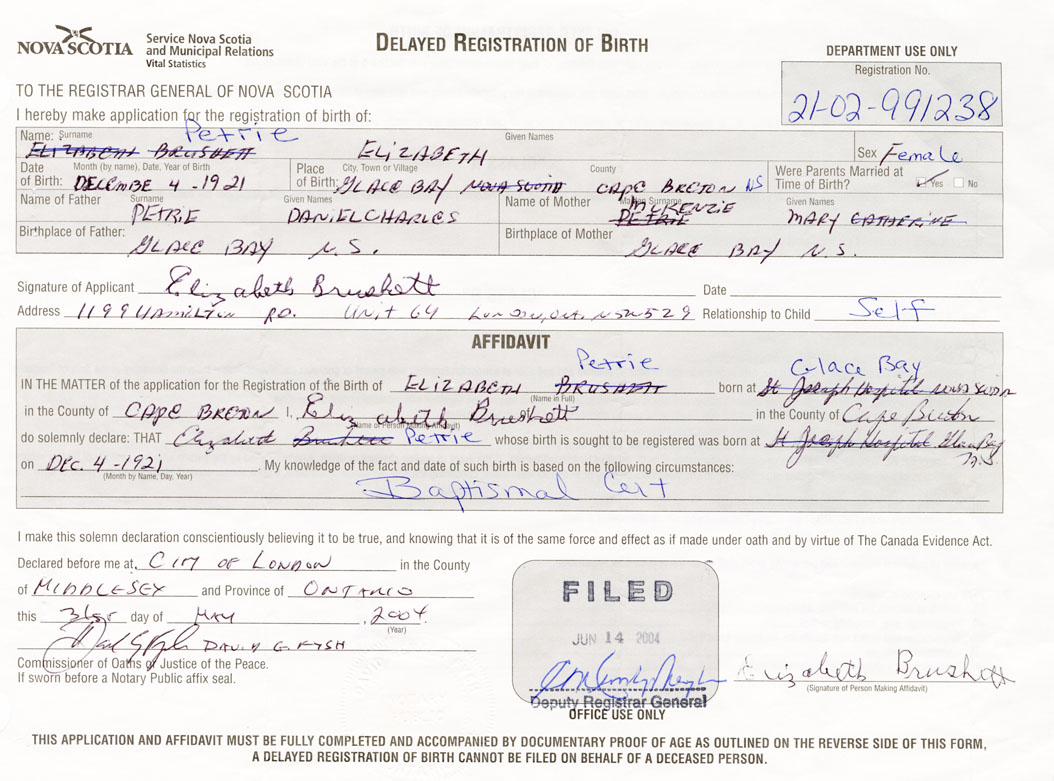 NOVA SCOTIA
Service Nova Scotia
and Municipal Relations
Vital Statistics
DELAYED REGISTRATION OF BIRTH
DEPARTMENT USE ONLY
Registration No.
21-02-991238
TO THE REGISTRAR GENERAL OF NOVA SCOTIA
I hereby make application for the registration of birth of:
Name: Surname Petrie Given Names
ELIZABETH BRUSHETT ELIZABETH Sex Female
Date of Birth: Month (by name), Date, Year of Birth DECEMBE 4 - 1921
Place of Birth: City, Town or Village County GLACE BAY NOVA SCOTIA CAPE BRETON NS
Were Parents Married at Time of Birth? Yes No
Name of Father Surname Given Names PETRIE DANIEL CHARLES
Name of Mother Maiden Surname Given Names MCKENZIE PETRIE MARY CATHERINE
Birthplace of Father: GLACE BAY N.S.
Birthplace of Mother GLACE BAY N.S.
Signature of Applicant Elizabeth Brushett Date
Address 1199 HAMILTON RD. UNIT 64 LONDON, Ont. Relationship to Child Self
AFFIDAVIT
Petrie Glace Bay
IN THE MATTER of the application for the Registration of the Birth of ELIZABETH BRUSHETT born at St Joseph Hospital NOVA SCOTIA
(Name in Full)
in the County of CAPE BRETON I, Elizabeth Brushett in the County of Cape Breton
(Name of Person Making Affidavit)
do solemnly declare: THAT Elizabeth Brushett Petrie whose birth is sought to be registered was born at St Joseph Hospital Glace Bay
N.S.
on DEC. 4 - 1921. My knowledge of the fact and date of such birth is based on the following circumstances:
(Month by Name, Day, Year)
Baptismal Cert
I make this solemn declaration conscientiously believing it to be true, and knowing that it is of the same force and effect as if made under oath and by virtue of The Canada Evidence Act.
Declared before me at, CITY OF LONDON in the County
of MIDDLESEX and Province of ONTARIO
this 31st day of MAY, 2004.
(Year)
DAVID G. FYSH
Commissioner of Oaths or Justice of the Peace.
If sworn before a Notary Public affix seal.
FILED
JUN 14 2004
Deputy Registrar General
OFFICE USE ONLY
Elizabeth Brushett
(Signature of Person Making Affidavit)
THIS APPLICATION AND AFFIDAVIT MUST BE FULLY COMPLETED AND ACCOMPANIED BY DOCUMENTARY PROOF OF AGE AS OUTLINED ON THE REVERSE SIDE OF THIS FORM,
A DELAYED REGISTRATION OF BIRTH CANNOT BE FILED ON BEHALF OF A DECEASED PERSON.